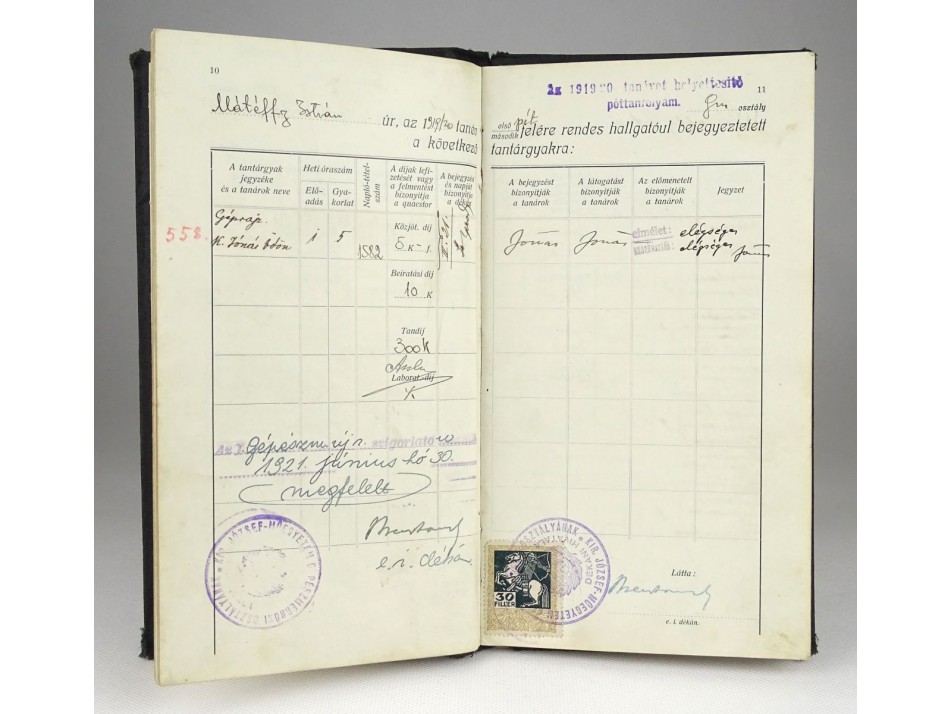 10
Mátéffy István úr, az 1919/20 tanév
a következő
A tantárgyak jegyzéke és a tanárok neve
Heti óraszám
Előadás
Gyakorlat
Napló-tételszám
A dijak lefizetését vagy a felmentést bizonyitja a quaestor
A bejegyzést és napját bizonyitja a dékán
558.
Géprajz.
K. Jónás Ödön
1
5
1582
Közjót. dij
5 K – f.
Beiratási dij
10 K
Tandij
300 K
Laborat. dij
Az I. Gépészm. új r. szigorlaton
1921. június hó 30.
megfelelt
e. i. dékán.
KIR. JÓZSEF-MŰEGYETEM
11
Az 1919/20 tanévet helyettesitő
póttanfolyam. Gm. osztály
első
második
pót felére rendes hallgatóul bejegyeztetett
tantárgyakra:
A bejegyzést bizonyitják a tanárok
A látogatást bizonyitják a tanárok
Az előmenetelt bizonyitják a tanárok
Jegyzet
Jónás
Jónás
elmélet: elégséges
elégséges
Jónás
30
FILLÉR
OSZTÁLYÁNAK
KIR. JÓZSEF-MŰEGYETEM
DÉKÁNI HIVATALA
Látta:
e. i. dékán.